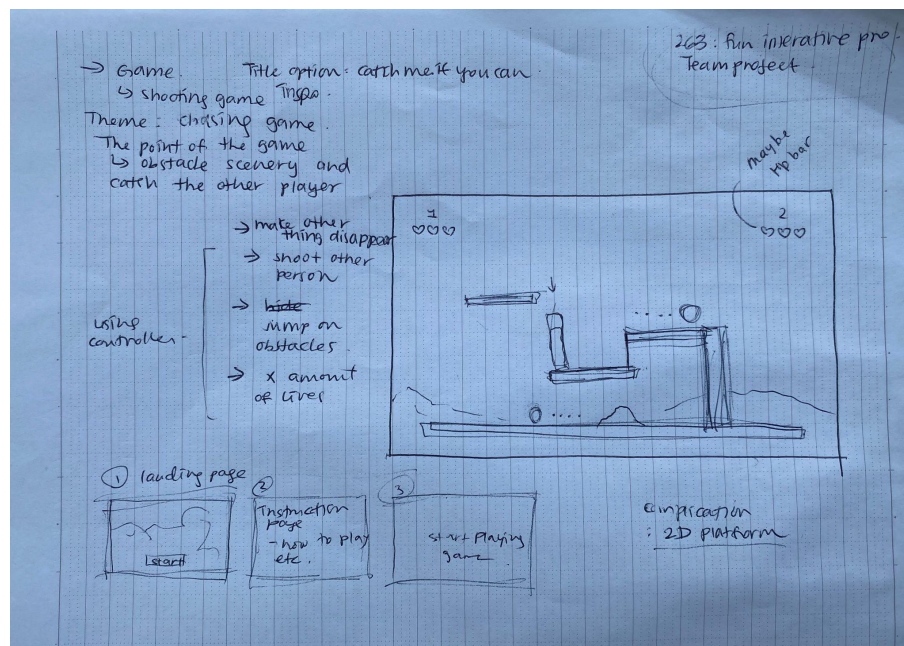 263: fun inerative pro
Team project.
→ Game. Title option: catch me if you can.
↳ shooting game inspo.
Theme: chasing game.
The point of the game
↳ obstacle scenery and
catch the other player
maybe
Hp bar
1
2
→ make other
thing disappear
→ shoot other
person
→ hide
jump on
obstacles.
→ x amount
of lives
using
controller-
① landing page
start
②
Instruction
page
- how to play
etc.
③
start playing
game.
: 2D platform